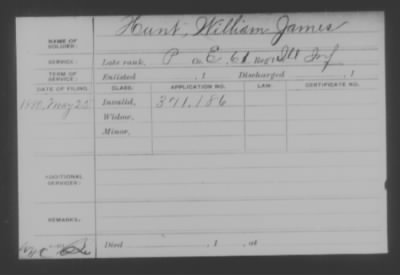 NAME OF SOLDIER: Hunt, William James
SERVICE: Late rank, P Co. E, 61 Reg't Ill Inf
TERM OF SERVICE: Enlisted , 1 Discharged , 1
DATE OF FILING. CLASS. APPLICATION NO. LAW. CERTIFICATE NO.
May 25 Invalid, 371,186
Widow,
Minor,
ADDITIONAL SERVICES:
REMARKS:
Died , 1 , at